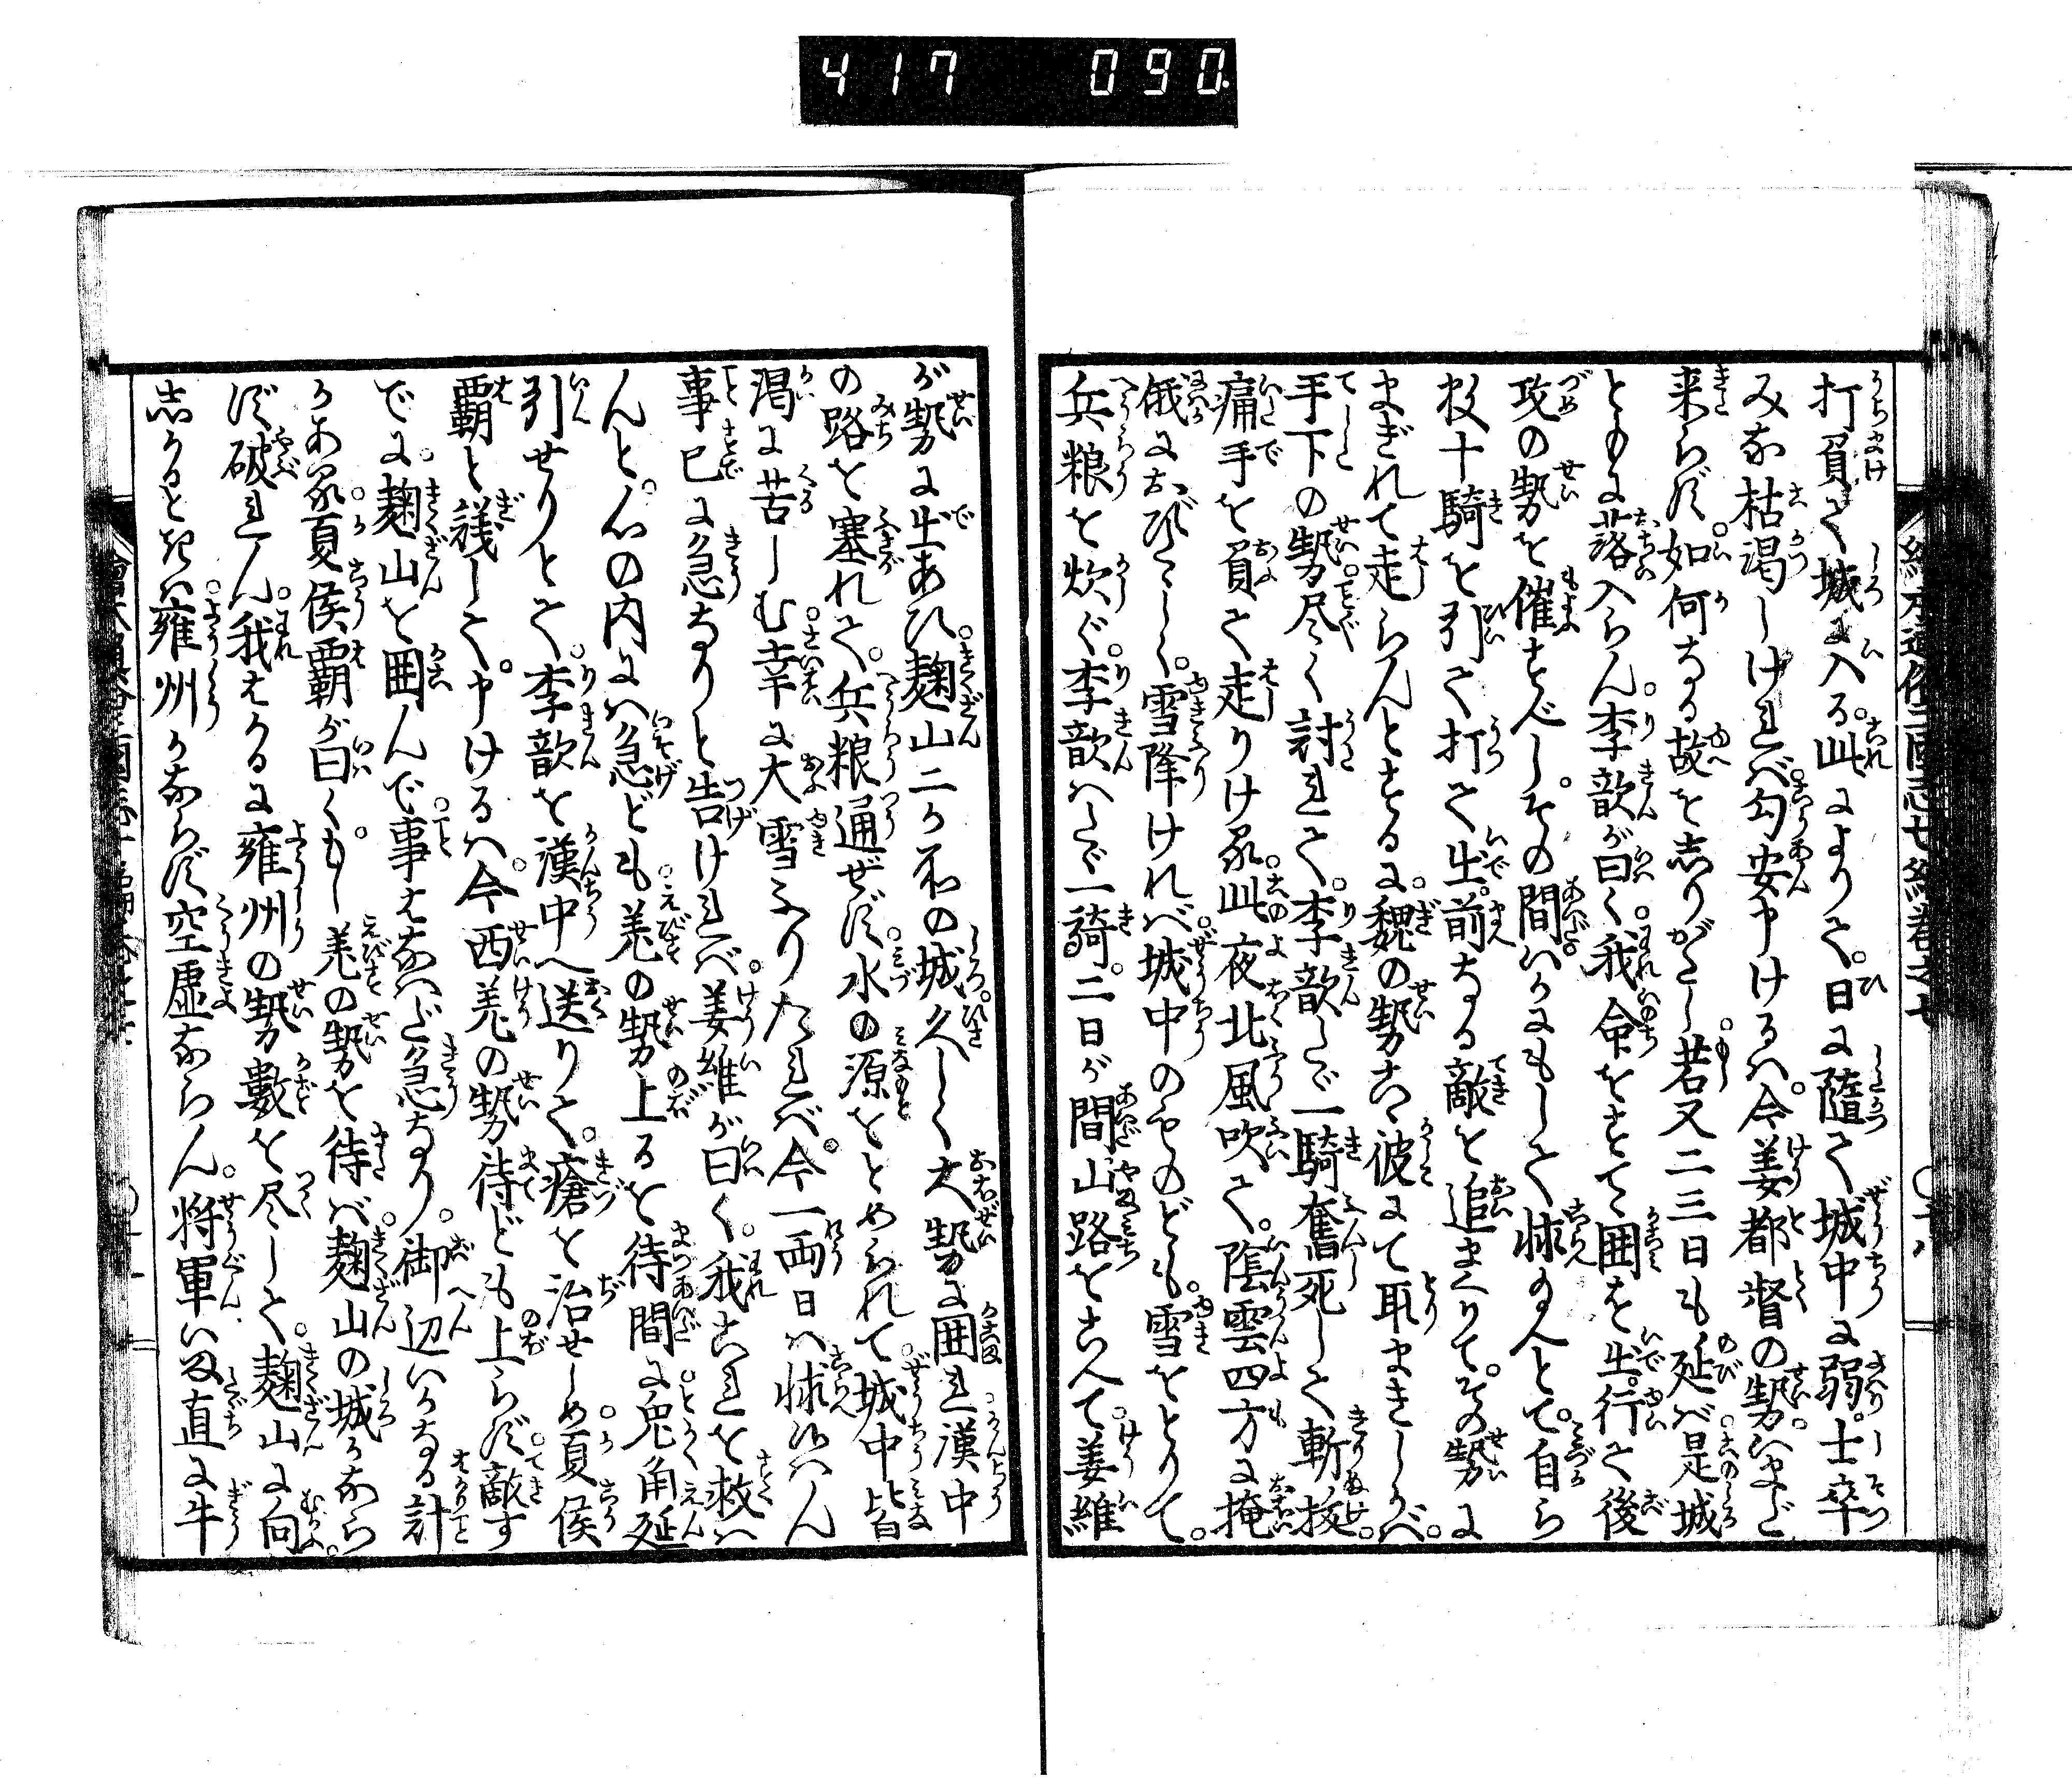 417 090
打負て城に入る此によりて日に隨て城中に弱士卒
みな枯渇しければ勾安申けるハ今姜都督の勢いまだ
来らず如何なる故を志りがたし若又二三日も延バ是城
ともに落入らん李歆が曰く我命をすてゝ囲を出行て後
攻の勢を催すべしその間いかにもして怺給へとて自ら
数十騎を引て打て出前なる敵を追まくりてその勢に
まぎれて走らんとするに魏の勢古く彼にて取まきしかバ
手下の勢尽く討れて李歆たゞ一騎奮死して斬抜
痛手を負て走りけり此夜北風吹て陰雲四方に掩
俄におびたゝしく雪降けれバ城中のものども雪をとりて
兵粮を炊ぐ李歆ハたゞ一騎二日が間山路をこへて姜維
が勢に出あひ麹山二ヶ所の城久しく大勢に囲れ漢中
の路を塞れて兵粮通ぜず水の源をとめられて城中皆
渇に苦しむ幸に大雪ふりたれバ今一両日ハ怺候ハん
事已に急なりと告けれバ姜維が曰く我これを救ハ
んと心の内にハ急ども羌の勢上るを待間に兎角延
引せりとて李歆を漢中へ送りて瘡を治せしめ夏侯
覇と議して申けるハ今西羌の勢待ども上らず敵す
でに麹山を囲んで事はなハだ急なり御辺いかなる計
かある夏侯覇が曰くもし羌の勢を待バ麹山の城かなら
ず破れん我はかるに雍州の勢數を尽して麹山に向
志かるときハ雍州かならず空虚ならん将軍いま直に牛